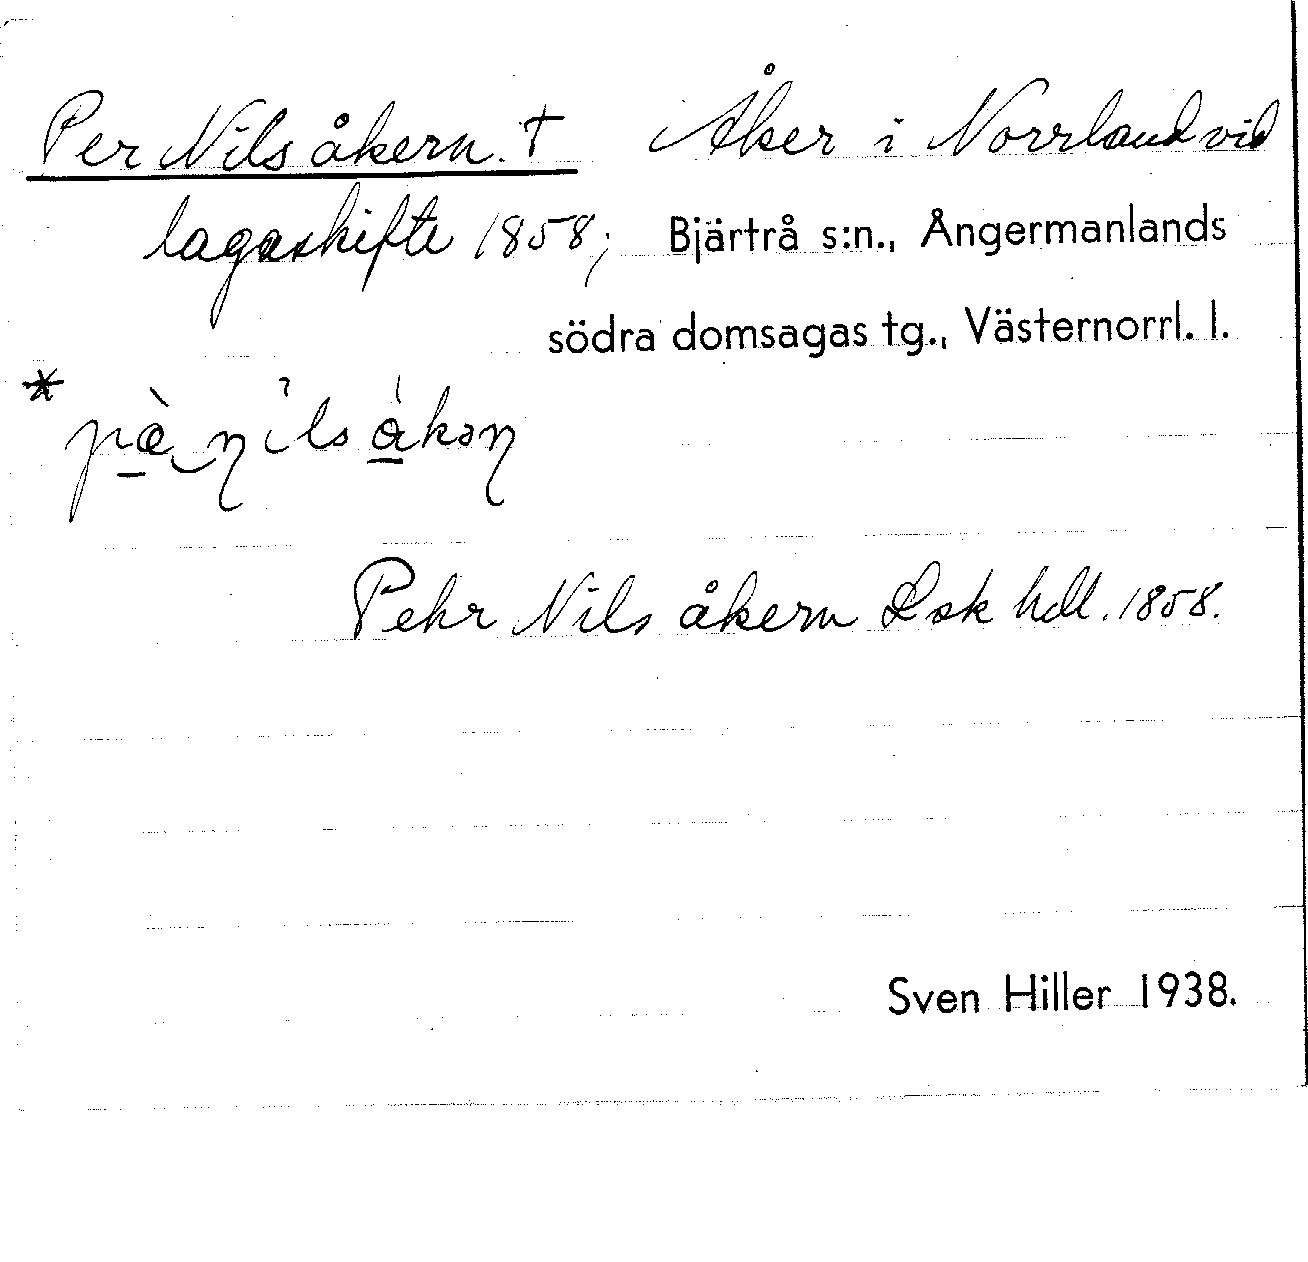 Per Nils åkern. † Åker i Norrland vid
lagaskifte 1858; Bjärtrå s:n., Ångermanlands
södra domsagas tg., Västernorrl. l.
Pehr Nils åkern Lsk hdl. 1858.
Sven Hiller 1938.